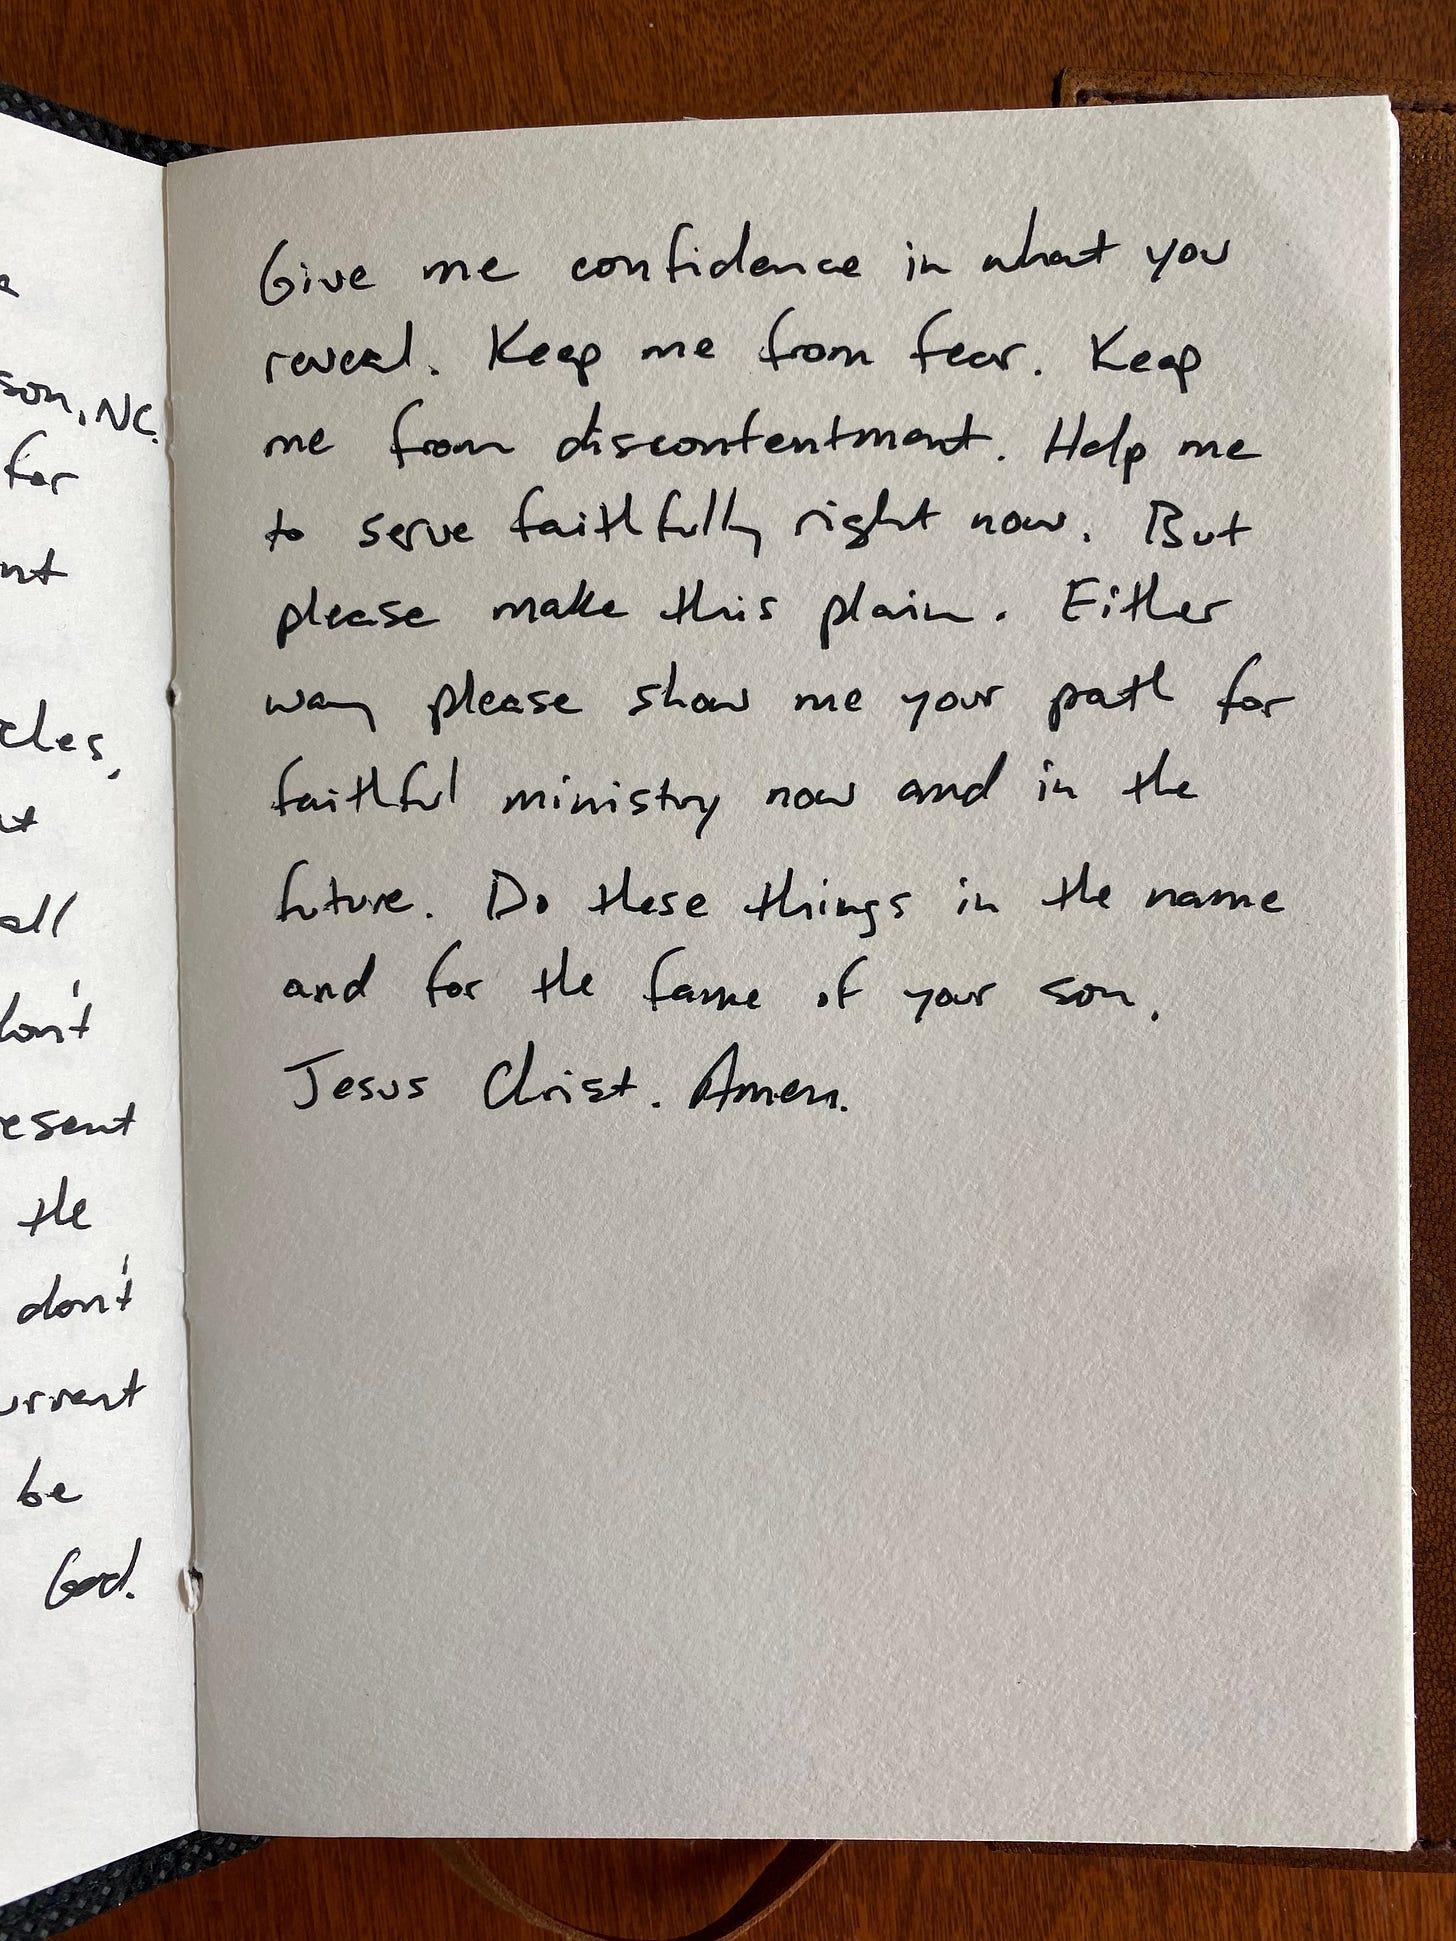 son, NC.
for
all
don't
the
don't
be
God.
Give me confidence in what you
reveal. Keep me from fear. Keep
me from discontentment. Help me
to serve faithfully right now. But
please make this plain. Either
way please show me your path for
faithful ministry now and in the
future. Do these things in the name
and for the fame of your son,
Jesus Christ. Amen.